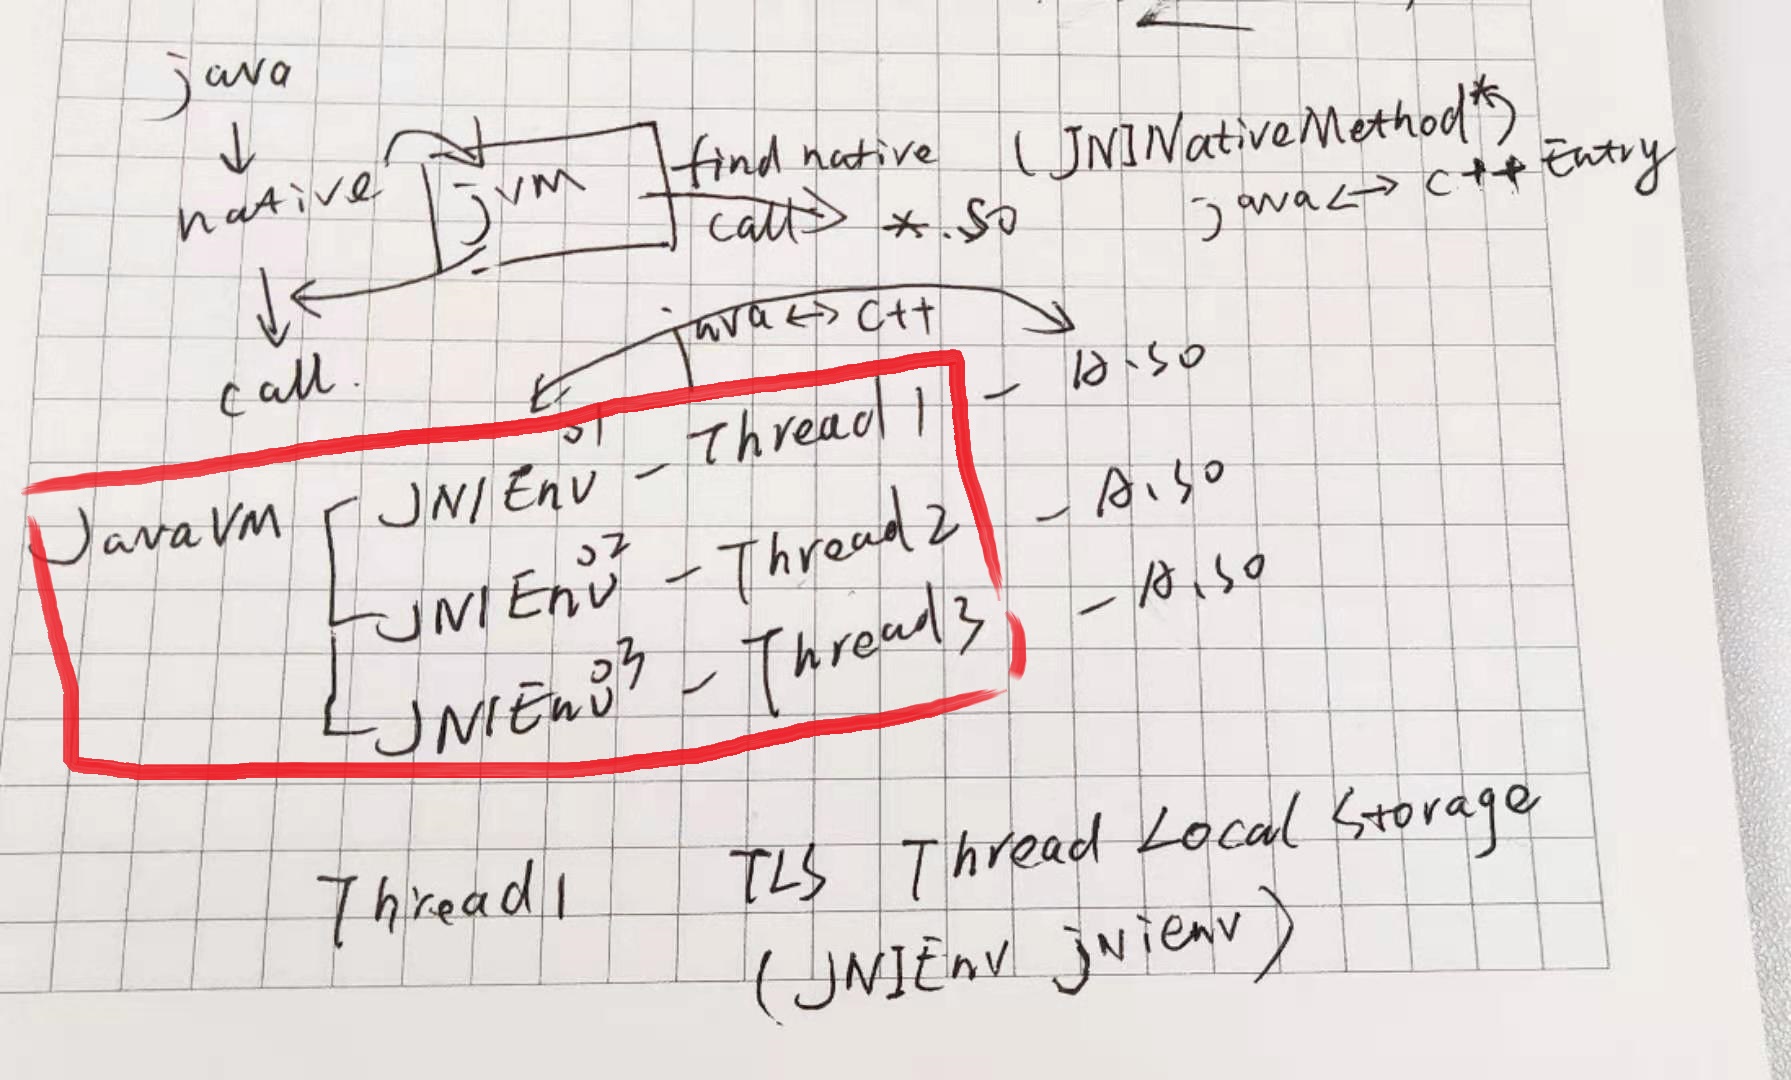 java
find native (JNINativeMethod*)
native jvm call *.so java <-> C++ Entry
call.
java <-> C++
A.so
JavaVM JNIEnv 01 - Thread1 - A.so
JNIEnv 02 - Thread2 - A.so
JNIEnv 03 - Thread3
Thread1 TLS Thread Local Storage
(JNIEnv jnienv)